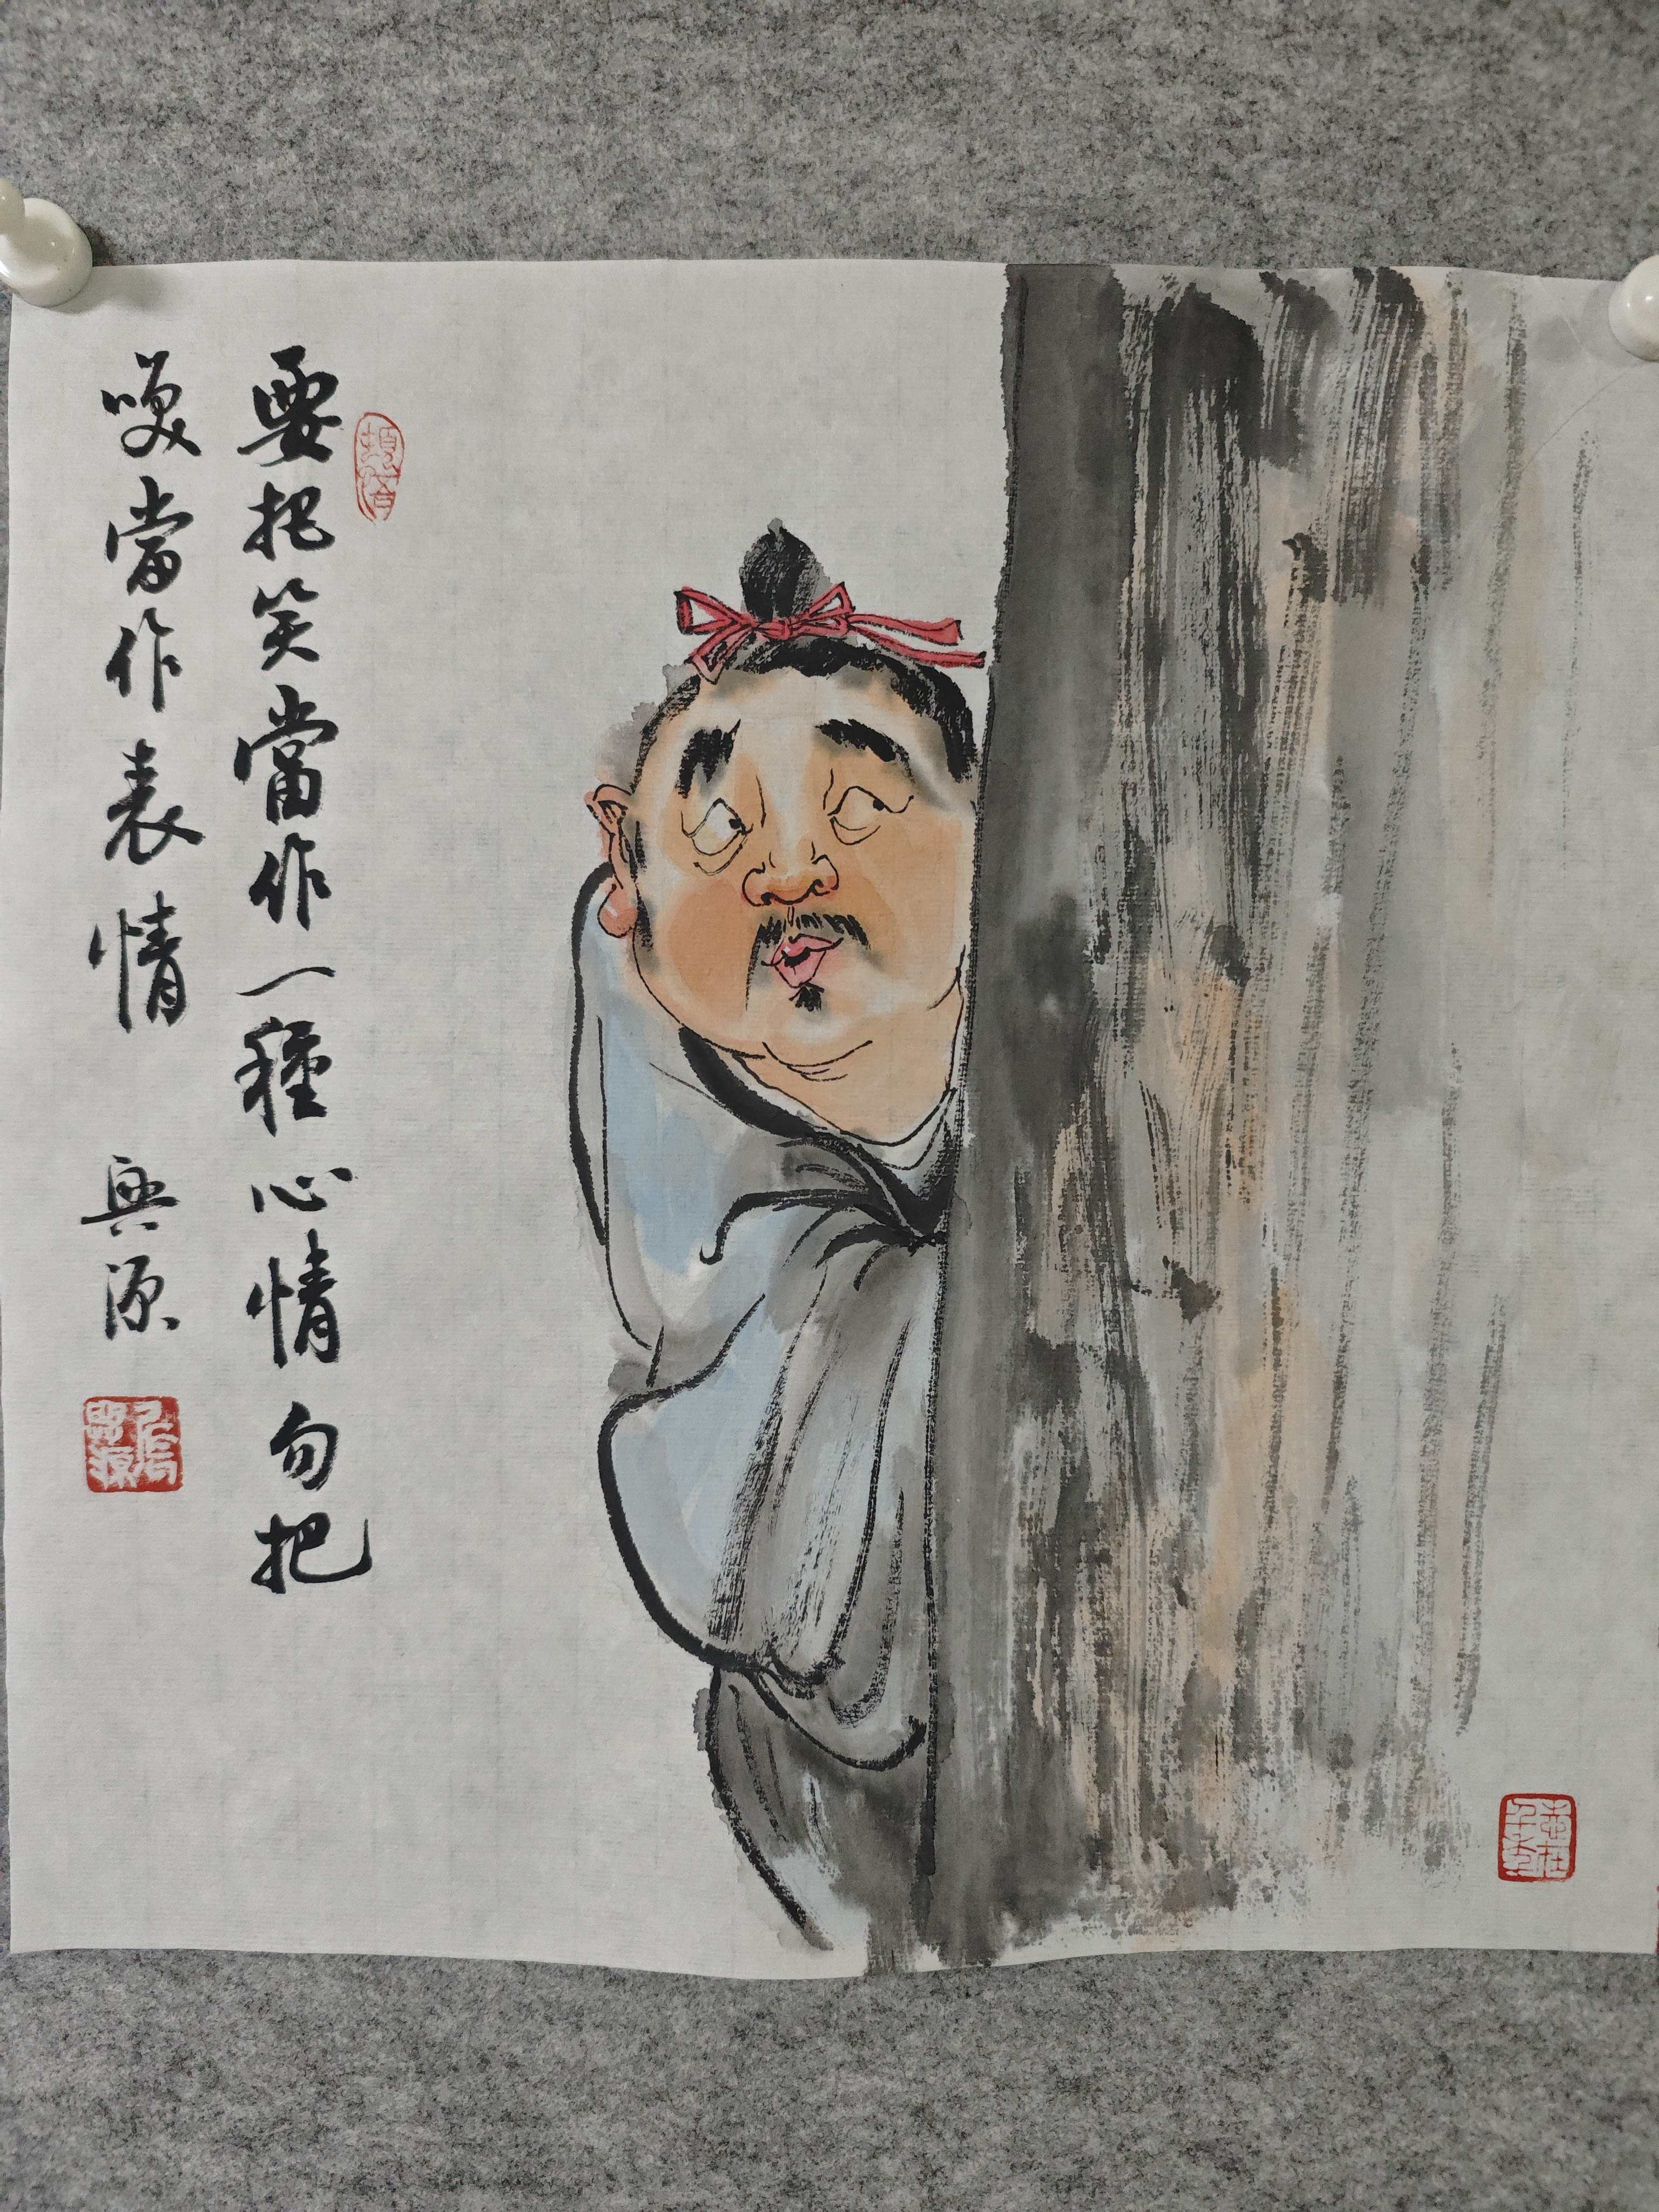 要把笑當作一種心情勿把
笑當作表情 興源